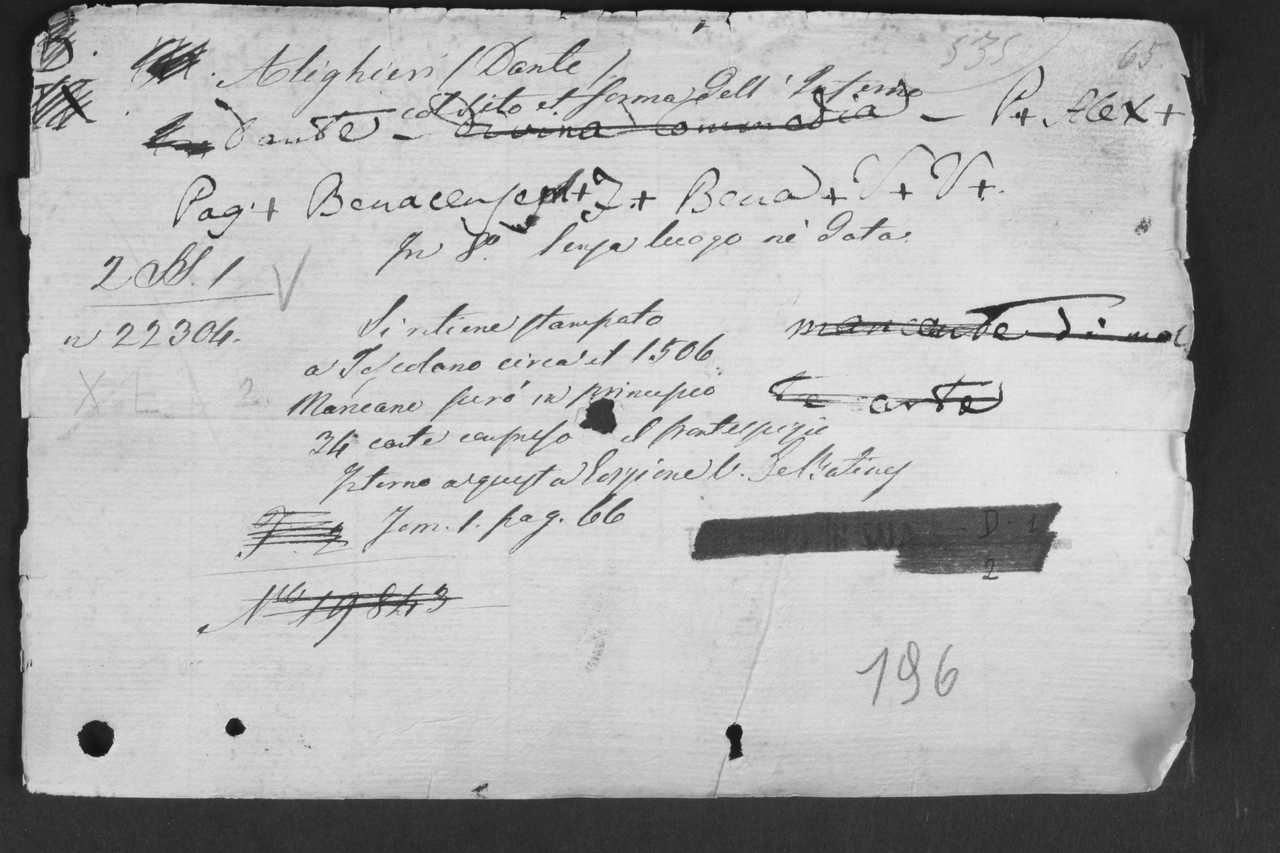 535 65
Alighieri (Dante)
col sito et forma dell' Inferno
Dante - divina commedia - P + Alex +
Pag. + Benacense + + Bena + V + V +.
In 8.º Senza luogo nè data.
2 1 V
n 22304.
Si ritiene stampato
a Toscolano circa il 1506
Mancano però in principio
34 carte compreso il frontespizio
Intorno a questa Edizione V. De Batines
Tom. 1. pag. 66
mancante di mol
te carte
D. 1
2
Nº 19843
196